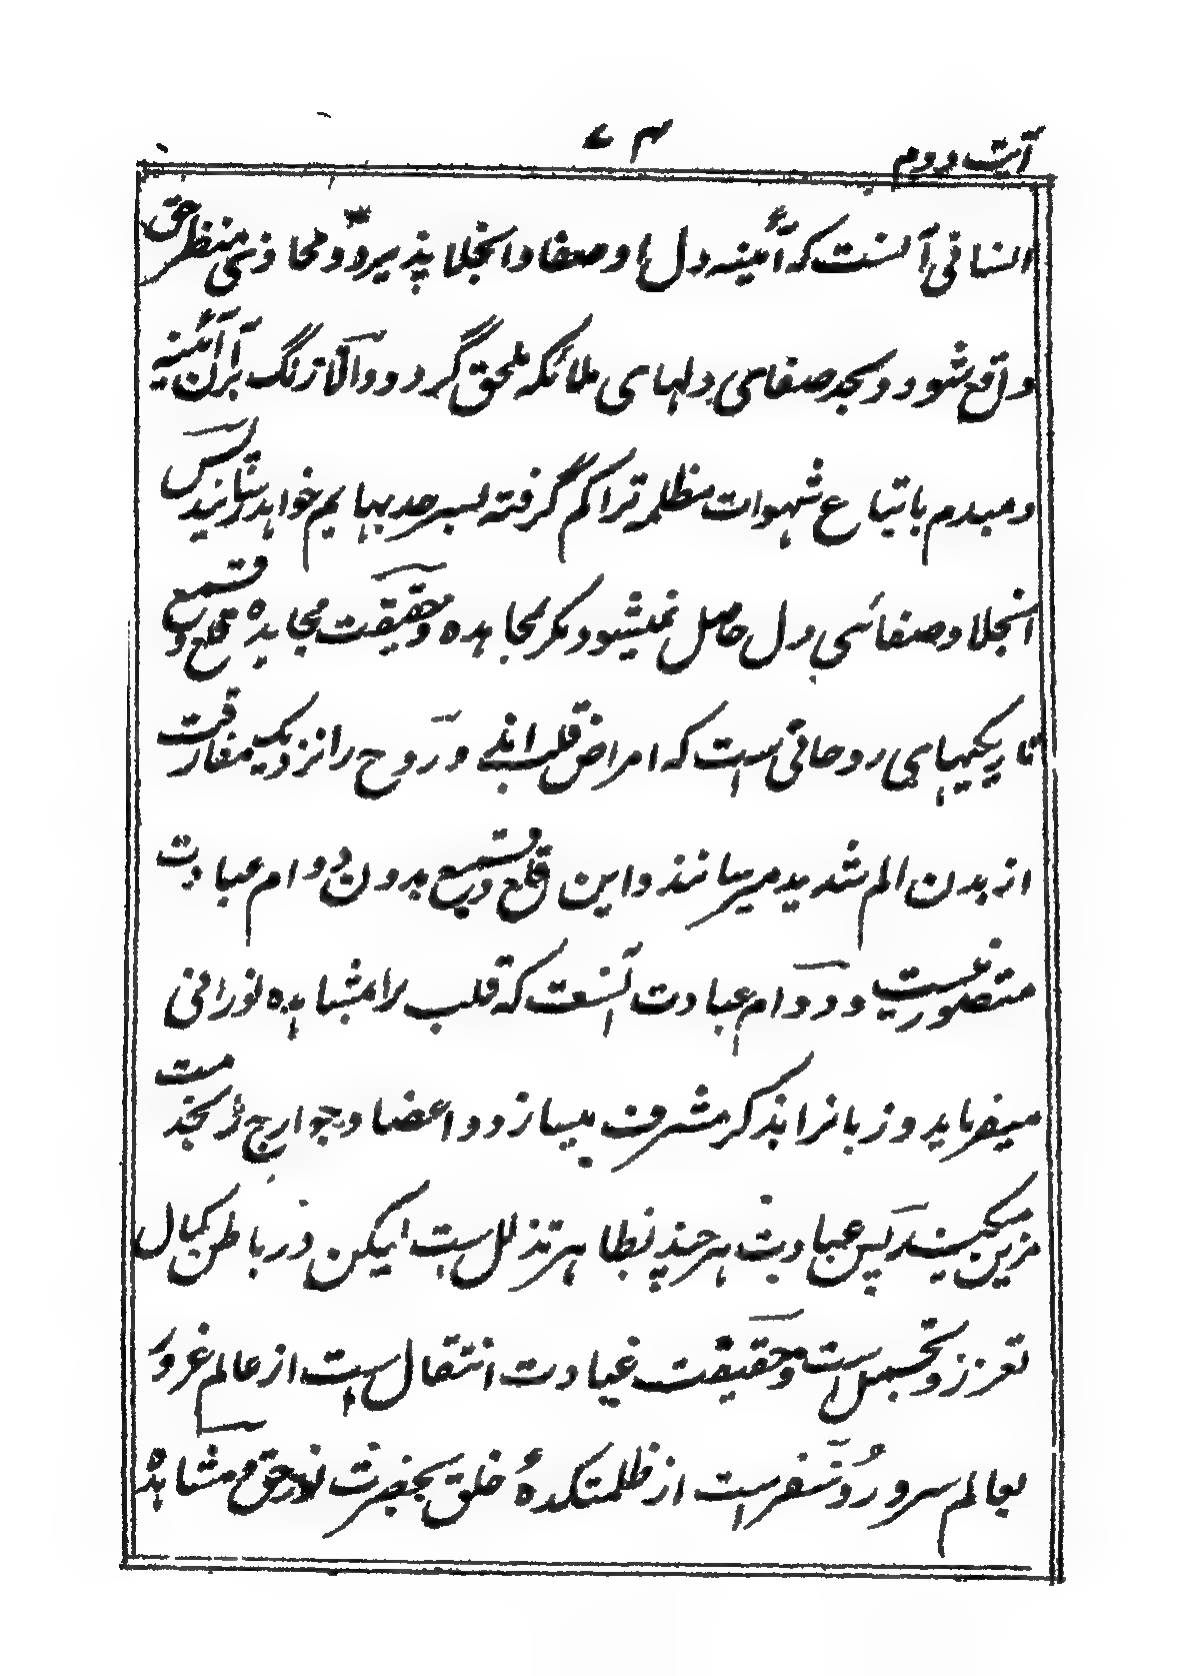 آیت دوم ۷۴
انسانی آنست که آئینه دل او صفا و انجلا پذیرد و محاذی منظر حق
واقع شود و بحد صفای دلهای ملائکه ملحق گردد والا زنگ بر آن آئینه
و مبدم باتباع شهوات مظلمه تراکم گرفته بسرحد بهایم خواهد رسانید پس
انجلا و صفائی دل حاصل نمیشود مگر بمجاهده و حقیقت مجاهده قلع و قمع
تاریکیهای روحانی است که امراض قلب اند و روح را نزدیک مفارقت
از بدن الم شدید میرسانند و این قلع و قمع بدون دوام عبادت
متصور نیست و دوام عبادت آنست که قلب را مشاهده نورانی
میفرماید و زبانرا بذکر مشرف میسازد و اعضا و جوارح را بخدمت
مزین میکند پس عبادت هر چند بظاهر تذلل است لیکن در باطن کمال
تعزز و تجمل است و حقیقت عبادت انتقال است از عالم غرور
بعالم سرور و سفر است از ظلمتکدهٔ خلق بحضرت نور حق و مشاهده